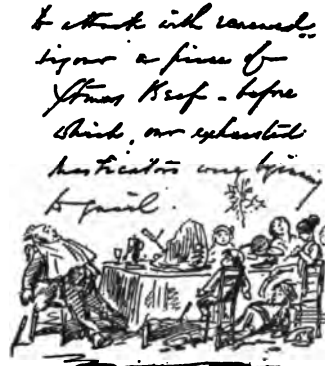 to attack with renewed
vigour a piece of
Xmas Beef - before
which, our exhausted
masticators were begining
to quail.